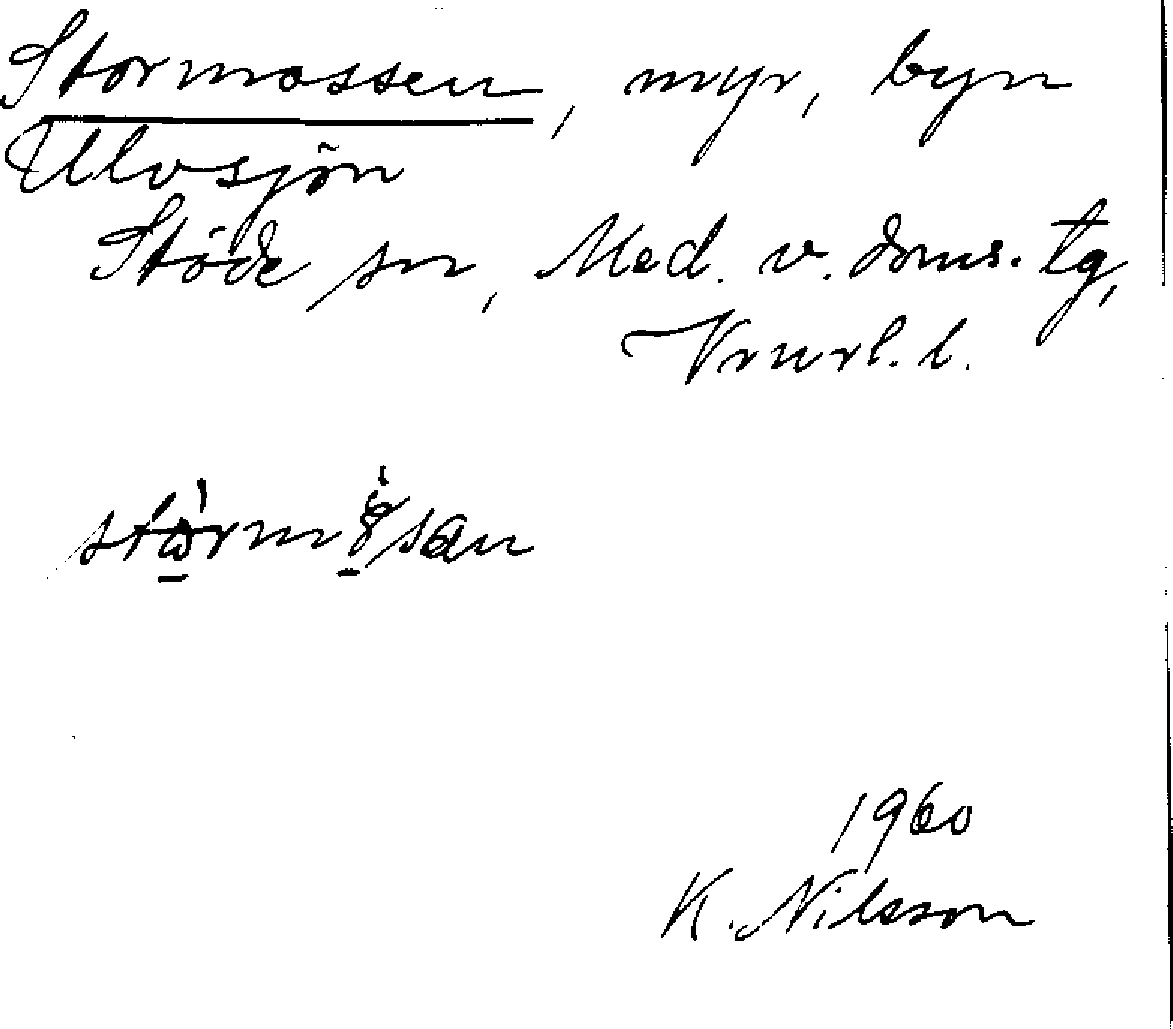 Stormossen, myr, byn
Ulvsjön
Stöde sn, Med. v. doms. tg,
Vnrl. l.
1960
K. Nilsson